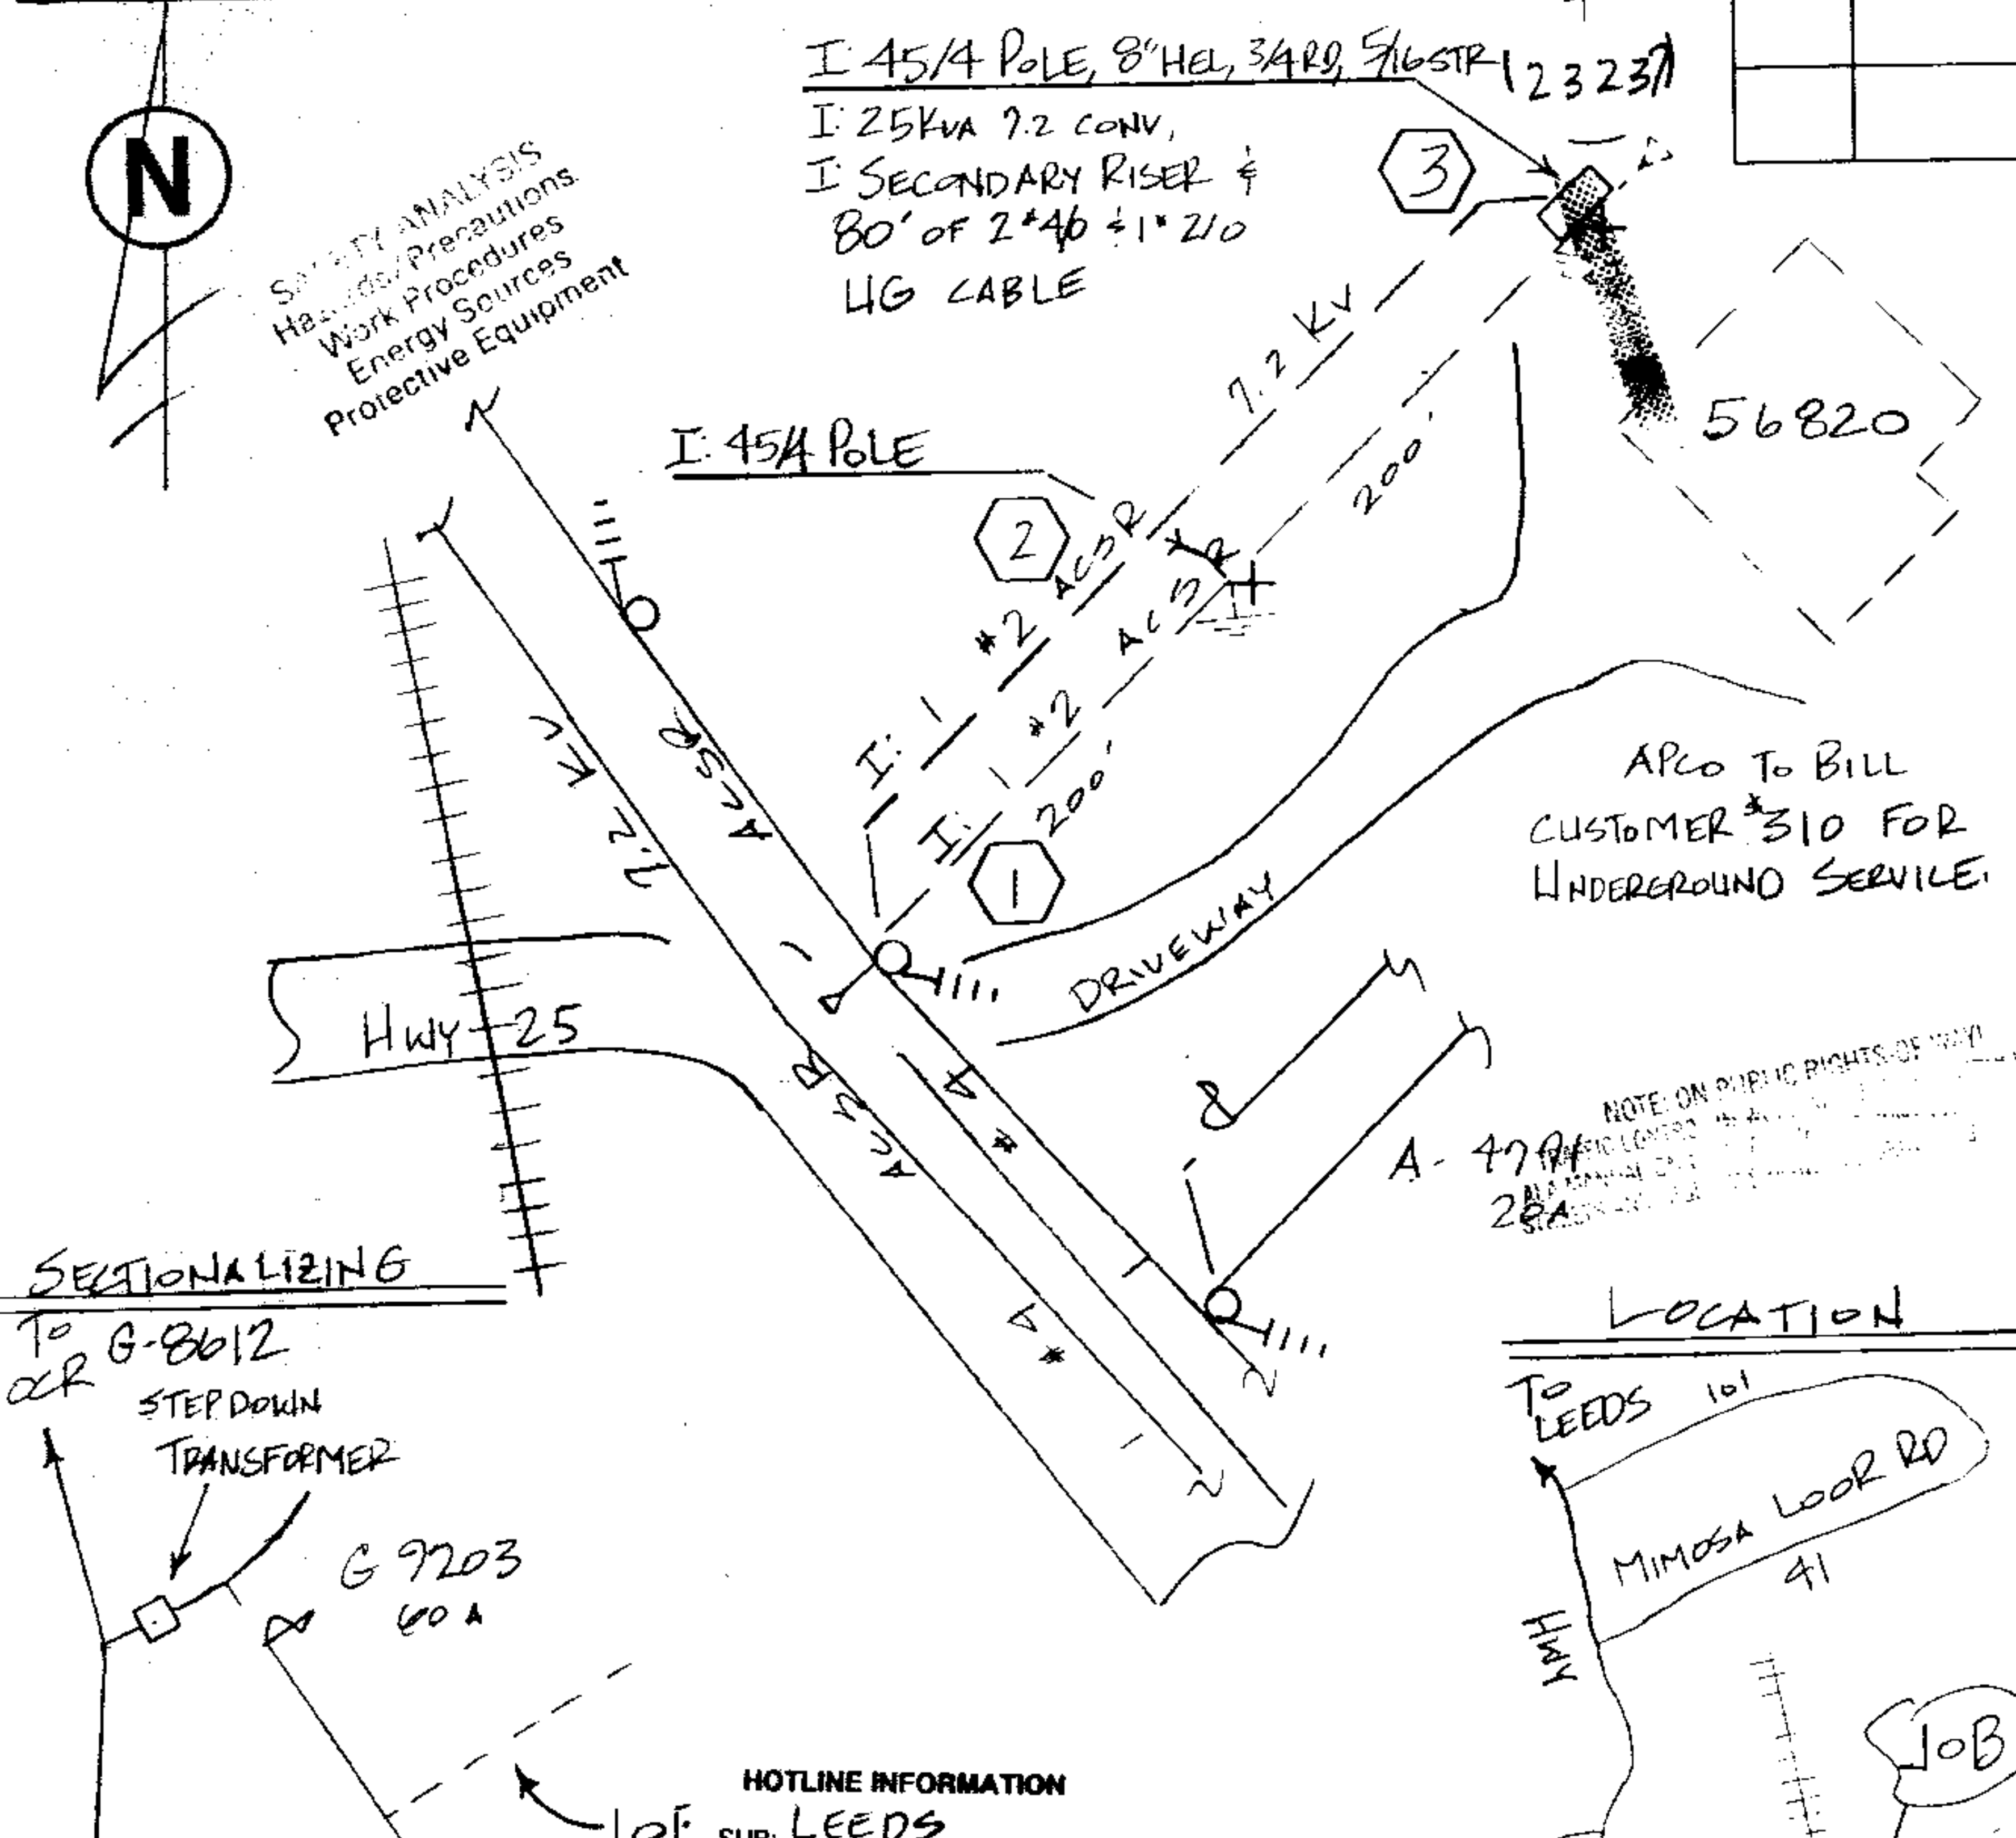 N
SAFETY ANALYSIS
Hazards/Precautions
Work Procedures
Energy Sources
Protective Equipment
I: 45/4 POLE, 8" HEL, 3/4 RD, 5/16 STR
I: 25KVA 7.2 CONV,
I: SECONDARY RISER &
80' OF 2#4/0 & 1#2/0
UG CABLE
12323
3
56820
I: 45/4 POLE
2
I: 1 #2 ACSR 7.2 KV
I: 1 #2 ACSR
200'
200'
1
7.2 KV
ACSR
ACSR
#4
1 #4
DRIVEWAY
HWY 25
APCO TO BILL
CUSTOMER $310 FOR
UNDERGROUND SERVICE.
NOTE: ON PUBLIC RIGHTS-OF-WAY
A-
SECTIONALIZING
TO
OCR
G-8612
STEPDOWN
TRANSFORMER
G 9203
60 A
LOCATION
TO
LEEDS
101
MIMOSA LOOP RD
41
HWY
JOB
HOTLINE INFORMATION
SUB: LEEDS